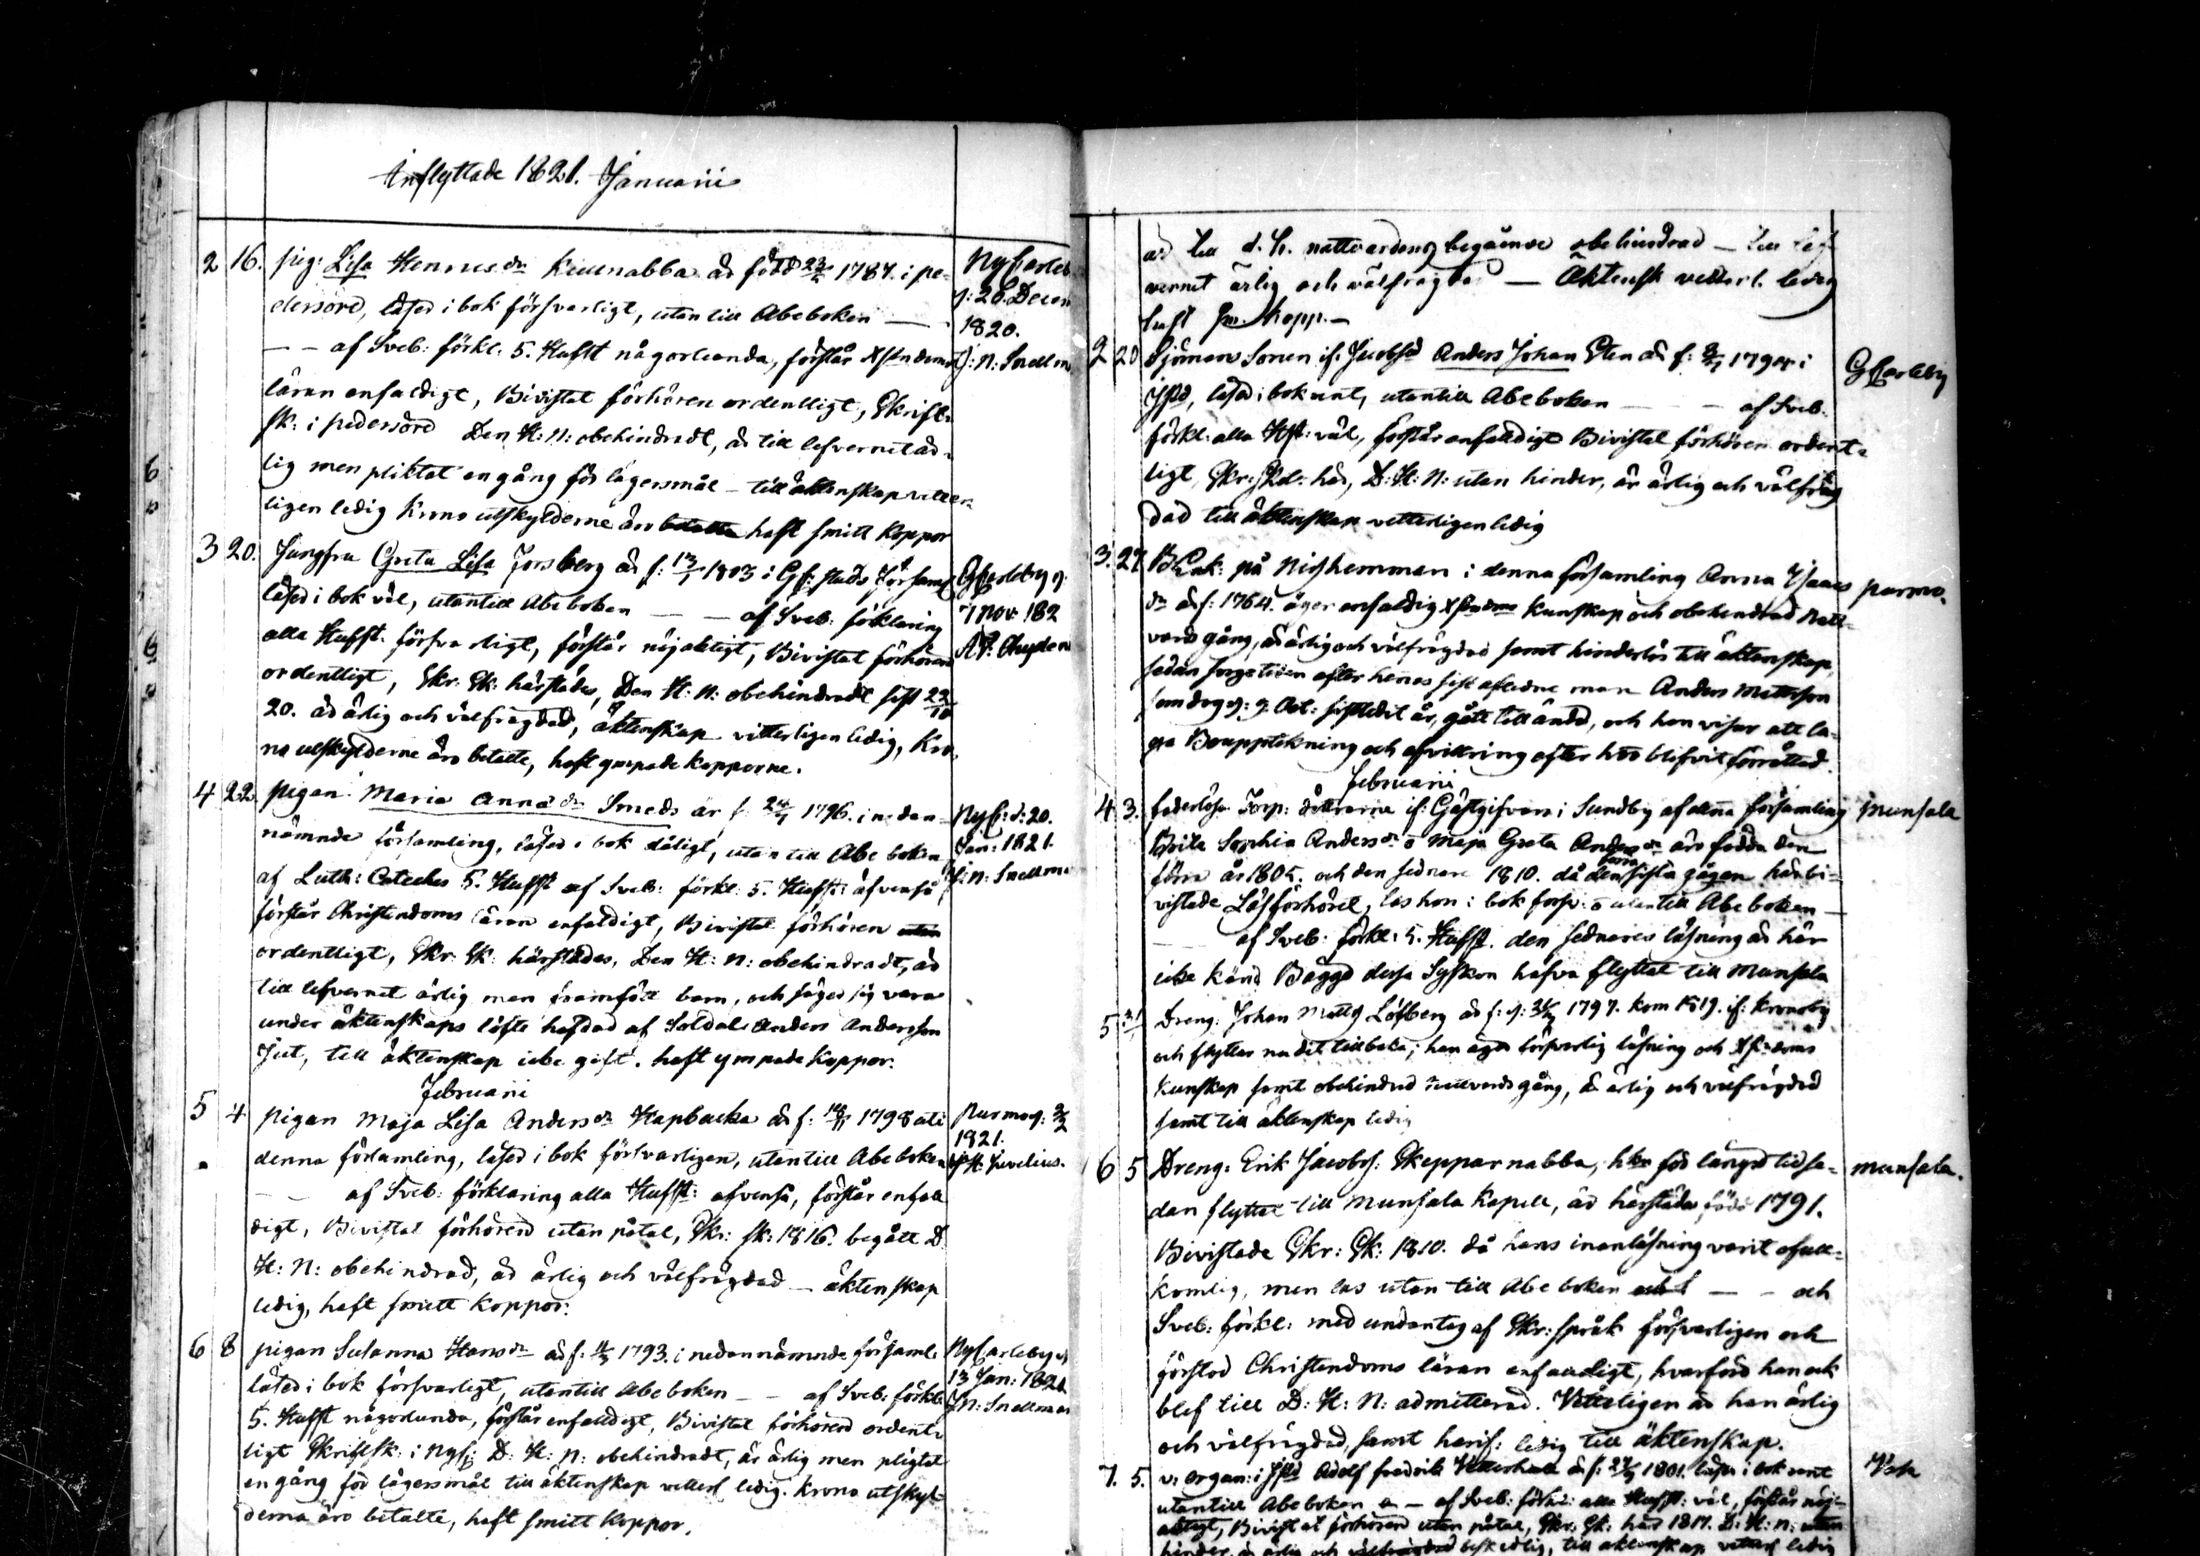 Inflyttade 1821. Januarii
2 16. pig: Lisa Hennes dr Keuenabba är född 1787. i pe- Nycarleb
dersöre, läser i bok försvarligt, utan till Abeboken — d: 28. Decem
1820.
— — af Sveb: förkl. 5. Hufst någorlunda, förstår Xstendoms J: N: Snellm
läran enfaldigt, Bivistat förhören ordentligt, Skrift-
sk: i pedersöre Den H: N: obehindradt, är till lefvernet är-
lig men pliktat en gång för lägersmål — till äktenskap vetter-
ligen ledig Krono utskylderne äro betalte haft smitt koppor
3 20. Jungfru Greta Lisa Forsberg är f: 13/1 1803 i GC: stads Församl GCarleby d:
läser i bok väl, utantill Abeboken — — af Sveb: förklaring 7 Nov: 182
alla Hufst. försvarligt, förstår nöjaktigt, Bivistat förhören Chyden
ordentligt, Skr: Sk: härstädes, Den H: N: obehindradt sist 22/10
20. är ärlig och välfrägdad, äktenskap vitterligen ledig, Kro-
no utskylderne äro betalte, haft ympade kopporne.
4 22. pigan Maria Anna dr Smeds är f. 24/4 1796. i nedan- Nyc: d: 20.
nämnde församling, läser i bok dåligt, utan till Abeboken Jan: 1821.
af Luth: Cateches 5. Hufst af Sveb: förkl: 5. Hufst: äfvenså J: N: Snellma
förstår Christendoms läran enfaldigt, Bivistat förhören utan
ordentligt, Skr: Sk: härstädes, Den H: N: obehindradt, är
till lefvernet ärlig men framfödt barn, och säger sig vara
under äktenskaps löfte häfdad af Soldat Anders Andersson
Jut, till äktenskap icke gift. haft ympade koppor.
Februarii
5 4 pigan Maja Lisa Anders dr Kapbacka är f: 1798 uti purmo d: 3/2
1821.
denna församling, läser i bok försvarligen, utantill Abeboken
— — af Sveb: förklaring alla Hufst: äfvenså, förstår enfal
digt, Bivistat förhören utan påtal, Skr: sk: 1816. begått D.
H: N: obehindrad, är ärlig och välfrägdad — äktenskap
ledig, haft smitt koppor:
6 8 pigan Susanna Hans dr är f: 1793. i nedannämnde församl: Nycarleby d:
läser i bok försvarligt, utantill Abeboken — — af Sveb: förkl: 13 Jan: 1821
5. Hufst någorlunda, förstår enfaldigt, Bivistat förhören ordent- J: N: Snellman
ligt Skriftsk: i Nyc: D. H: N: obehindradt, är ärlig men pligtat
en gång för lägersmål till äktenskap vetterl ledig. Krono utskyl-
derna äro betalte, haft smitt koppor.
är till d. h. nattvardens begående obehindrad — till lef
vernet ärlig och välfrägdad — Äktensk vetterl. ledig
haft sm. kopp. —
2 20 Sjöman Sonen if. Jacobsd Anders Johan Sten är f: 1794 i GCarleby
Jstd, läser i bok rent, utantill Abeboken — — af Sveb:
förkl: alla Hst: väl, förstår enfaldigt Bivistat förhören ordent-
ligt, Skr: Sk: här, D: H: N: utan hinder, är ärlig och välfräg
dad till äktenskap vetterligen ledig
3. 27 på Nishemman i denna församling Anna Isaacs purmo.
dr är f: 1764. äger enfaldig Xstendoms kunskap och obehindrad natt-
vards gång, är ärlig och välfrägdad samt hinderlös till äktenskap,
sedan sorgetiden efter hennes sist afledne man Anders Mattsson
som dog d: 9. Oct: sistledit år, gått till ända, och hon visar att la-
ga Boupptekning och afvittring efter h:o blifvit förrättad.
Februarii
4 3. faderlösa Torp: döttrarne if. Gästgifvars i Sundby af denna församling Munsala
Brita Sophia Anders dr o Maja Greta Anders dr äro födda den
förra år 1805. och den sednare 1810. då den förra sista gången här bi-
vistade Läsförhöret, las hon i bok förs: o utantill Abeboken —
— af Sveb: förkl: 5. Hufst. den sednares läsning är här
icke känd Bägge dessa Syskon hafva flyttat till Munsala
5 Dreng: Johan Matts Löfberg är f: d: 1797. kom 1819. if. Kronoby
och flyttar nu dit tillbaka; han äger försvarlig läsning och Xst:doms
kunskap samt obehindrad nattvardsgång, är ärlig och välfrägdad
samt till äktenskap ledig
6 5 Dreng: Erik Jacobs: Skepparnabba, h för längre tid se- Munsala.
dan flyttat till Munsala Kapell, är härstädes född 1791.
Bivistade Skr: Sk: 1810. då hans inanläsning varit ofull-
komlig, men las utan till Abeboken — — och
Sveb: förkl: med undantag af Skr: språk försvarligen och
förstod Christendoms läran enfaldigt, hvarföre han ock
blef till D: H: N: admitterad. Vetterligen är han ärlig
och välfrägdad, samt härif: ledig till äktenskap.
7. 5. v: organ: i Jstd Adolf Fredrik är f: 1801. läser i bok rent
utantill Abeboken — — af Sveb: förkl: alla Hufst: väl, förstår nöj-
aktigt, Bivistat förhören utan påtal, Skr: Sk: här 1817. D: H: N: utan
hinder, är ärlig och beskedlig, till äktenskap vetterl ledig